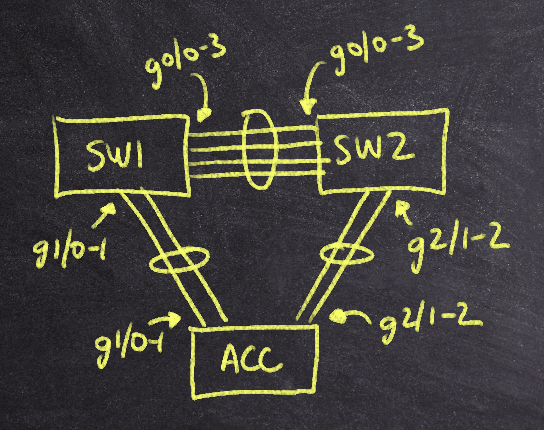 g0/0-3
g0/0-3
SW1
SW2
g1/0-1
g2/1-2
g1/0-1
g2/1-2
ACC